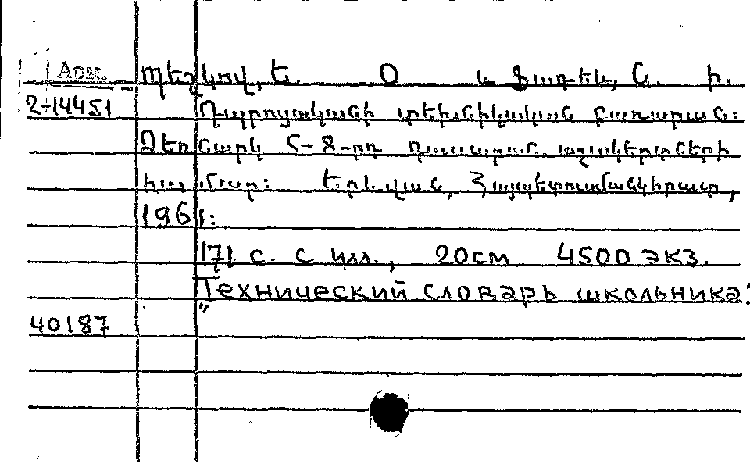 Арм. Պեշկով, Ե. Օ և Ֆադեև, Ն. Ի.
2-14451 Դպրոցականի տեխնիկական բառարան:
Ձեռնարկ 5-8-րդ դասարան. աշակերտների
համար: Երևան, Հայպետուսմանկհրատ,
1961:
171 с. с илл., 20см 4500 экз.
Технический словарь школьника:
40187